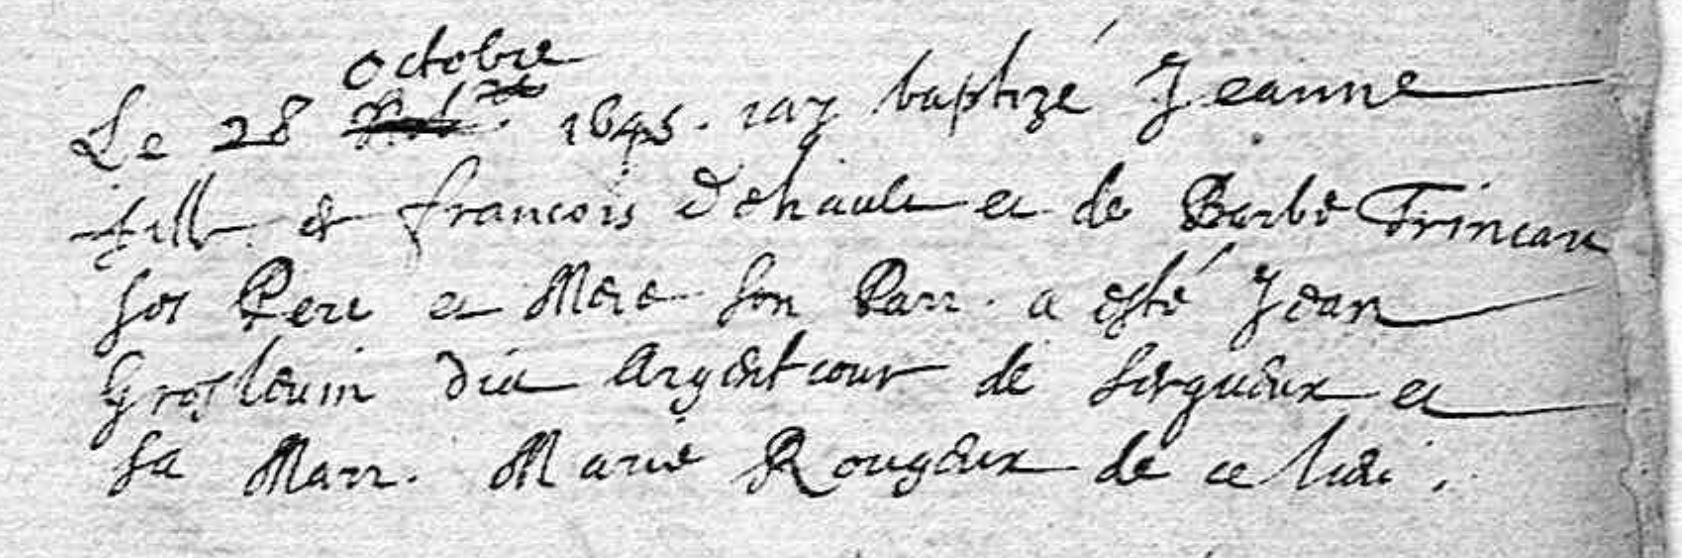 octobre
Le 28 1645. iay baptizé Jeanne
fille de francois Dehault et de Barbe Trincart
ses Pere et Mere son Parr. a esté Jean
Grosleuin dit Argentcour de Serqueux et
sa Marr. Marie Rougeux de ce lieu.